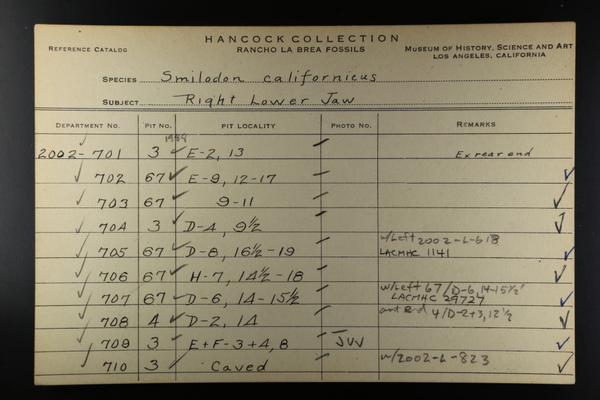 HANCOCK COLLECTION
REFERENCE CATALOG RANCHO LA BREA FOSSILS MUSEUM OF HISTORY, SCIENCE AND ART
LOS ANGELES, CALIFORNIA
SPECIES Smilodon californicus
SUBJECT Right Lower Jaw
DEPARTMENT NO. PIT NO. PIT LOCALITY PHOTO NO. REMARKS
2002-701 3 E-2, 13 Ex rear end
702 67 E-9, 12-17
703 67 9-11
704 3 D-4, 9½
w/Left 2002-L-618
705 67 D-8, 16½-19 LACMHC 1141
706 67 H-7, 14½-18
w/Left 67/D-6, 14-15½'
707 67 D-6, 14-15½ LACMHC 29727
708 4 D-2, 14 ant end 4/D-2+3, 12½
709 3 E+F-3+4, 8 JUV
710 3 Caved w/2002-L-823